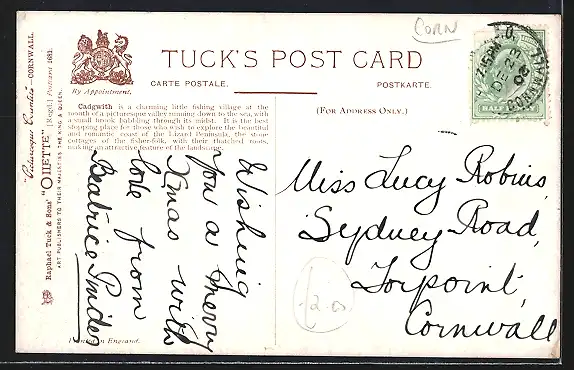 CORN
TUCK'S POST CARD
CARTE POSTALE.
POSTKARTE.
By Appointment.
(FOR ADDRESS ONLY.)
"Picturesque Counties"—CORNWALL.
Raphael Tuck & Sons' "OILETTE" [Regd.] Postcard
ART PUBLISHERS TO THEIR MAJESTIES THE KING & QUEEN.
Cadgwith is a charming little fishing village at the
mouth of a picturesque valley running down to the sea, with
a small brook babbling through its midst. It is the best
stopping place for those who wish to explore the beautiful
and romantic coast of the Lizard Peninsula, the stone
cottages of the fisher-folk, with their thatched roofs,
making an attractive feature of the landscape.
Wishing
you a Merry
Xmas with
love from
Beatrice
Printed in England.
Miss Lucy Robins,
Sydney Road,
Torpoint,
Cornwall
7.15PM
DE 23
08
HALF